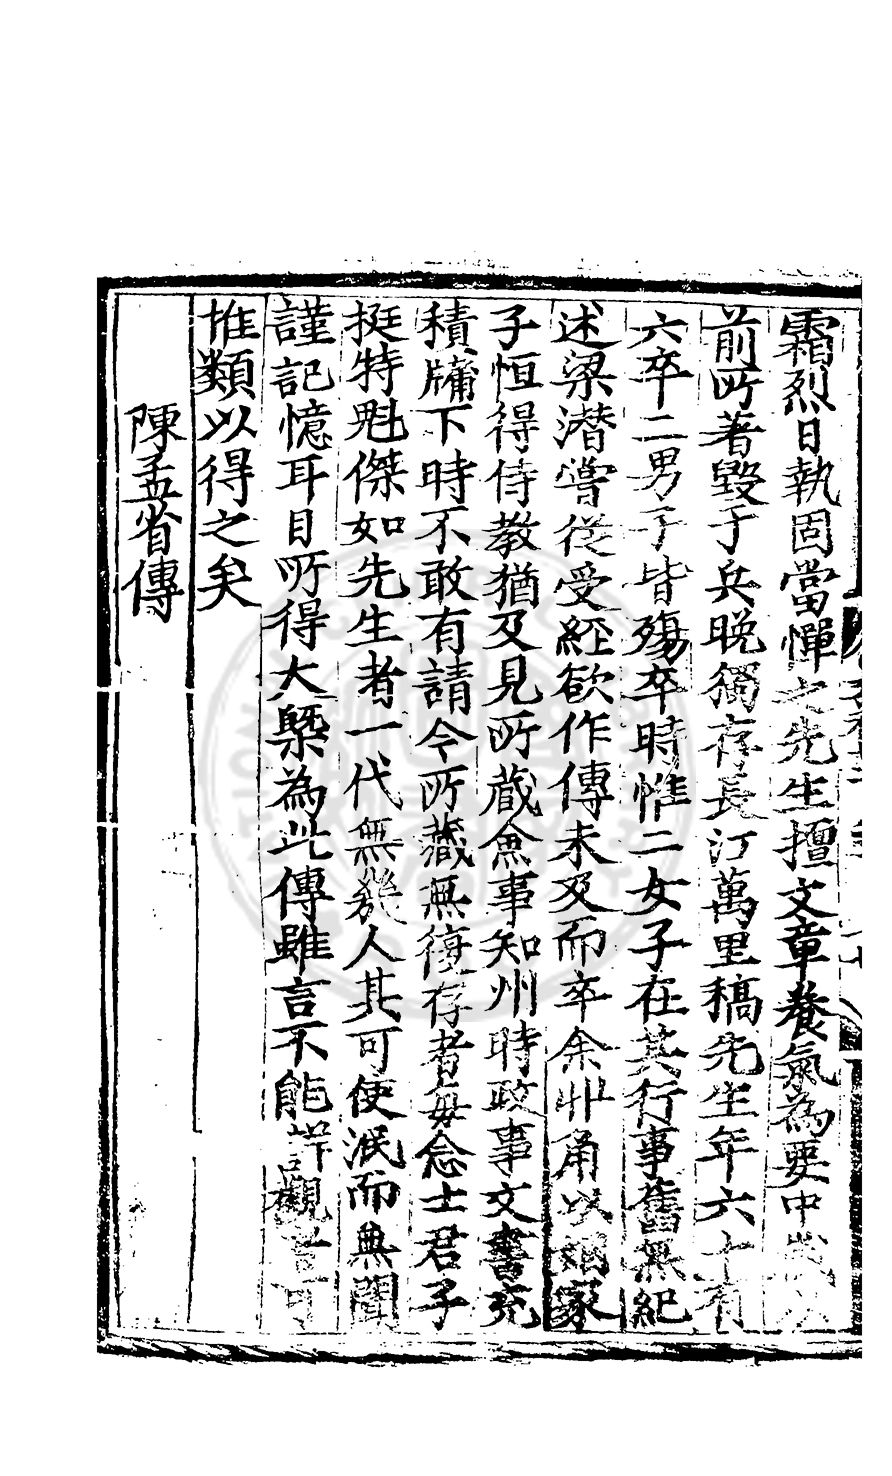 霜烈日執固當憚之先生擅文章養氣為要中歲以
前所著毀于兵晚獨存長江萬里稿先生年六十有
六卒二男子皆殤卒時惟二女子在其行事舊無紀
述梁潛嘗從受經欲作傳未及而卒余丱角以姻家
子恒得侍教猶及見所蔵僉事知州時政事文書充
積牖下時不敢有請今所藏無復存者每念士君子
挺特魁傑如先生者一代無幾人其可使泯而無聞
謹記憶耳目所得大槩為此傳雖言不能詳觀者可
推類以得之矣
陳孟省傳